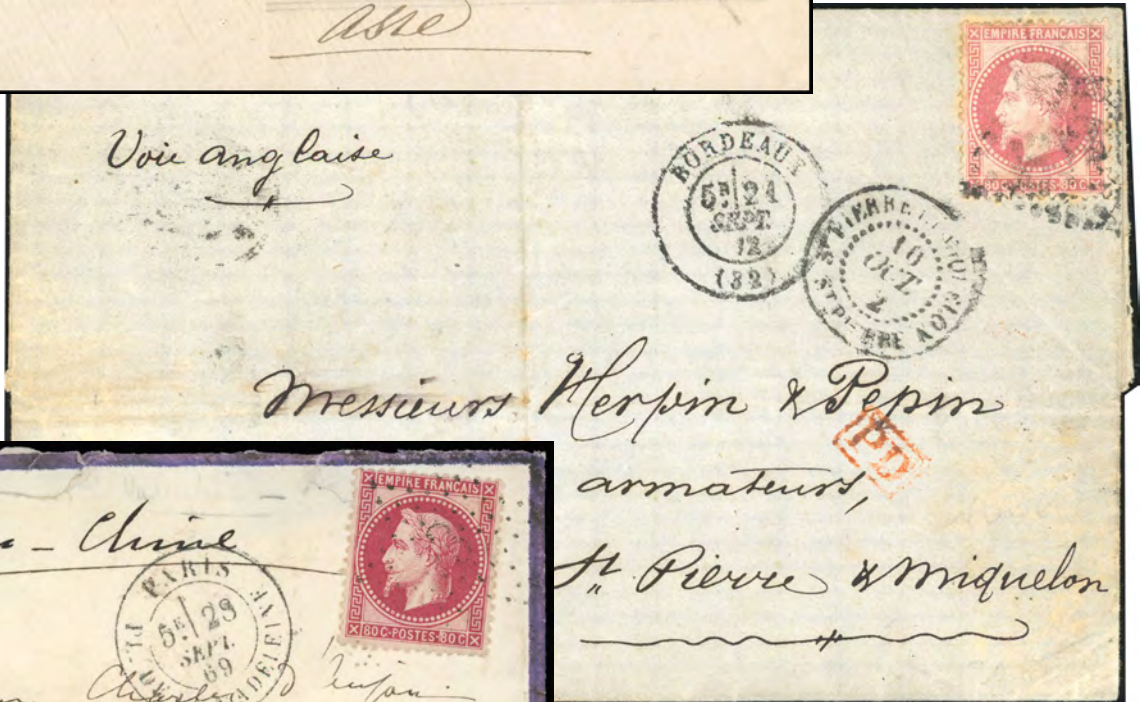 asse
Voie anglaise
EMPIRE FRANÇAIS
80C·POSTES·80C
BORDEAUX
5E 21
SEPT.
72
(32)
ST PIERRE
16
OCT
2
ST PIERRE
Messieurs Herpin & Pepin
PD
armateurs,
St. Pierre & Miquelon
Chine
EMPIRE FRANÇAIS
80C·POSTES·80C
PARIS
5E 28
SEPT.
69
PL. DE LA MADELEINE